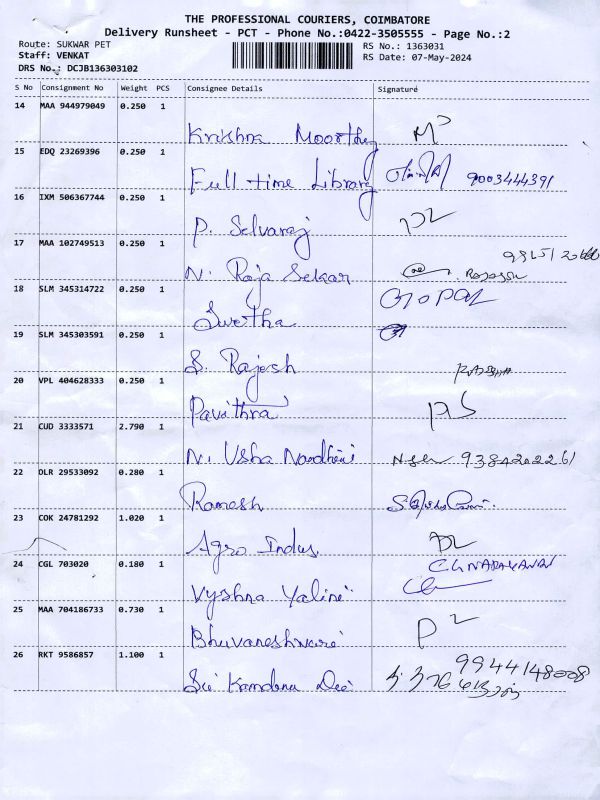 THE PROFESSIONAL COURIERS, COIMBATORE
Delivery Runsheet - PCT - Phone No.:0422-3505555 - Page No.:2
Route: SUKWAR PET RS No.: 1363031
Staff: VENKAT RS Date: 07-May-2024
DRS No.: DCJB136303102
S No Consignment No Weight PCS Consignee Details Signature
14 MAA 944979049 0.250 1
Krishna Moorthy
15 EDQ 23269396 0.250 1
Full time Library 9003444391
16 IXM 506367744 0.250 1
P. Selvaraj
17 MAA 102749513 0.250 1
N. Raja Sekar
18 SLM 345314722 0.250 1 GOPAL
Swetha
19 SLM 345303591 0.250 1
S. Rajesh
20 VPL 404628333 0.250 1
Pavithra
21 CUD 3333571 2.790 1
N. Usha Nandhini 9384202261
22 DLR 29533092 0.280 1
Ramesh
23 COK 24781292 1.020 1
Agro Indus
24 CGL 703020 0.180 1 C.G NARAYANAN
Vyshna Yalini
25 MAA 704186733 0.730 1
Bhuvaneshwari
26 RKT 9586857 1.100 1 9944148008
Sri Kamdena Dei